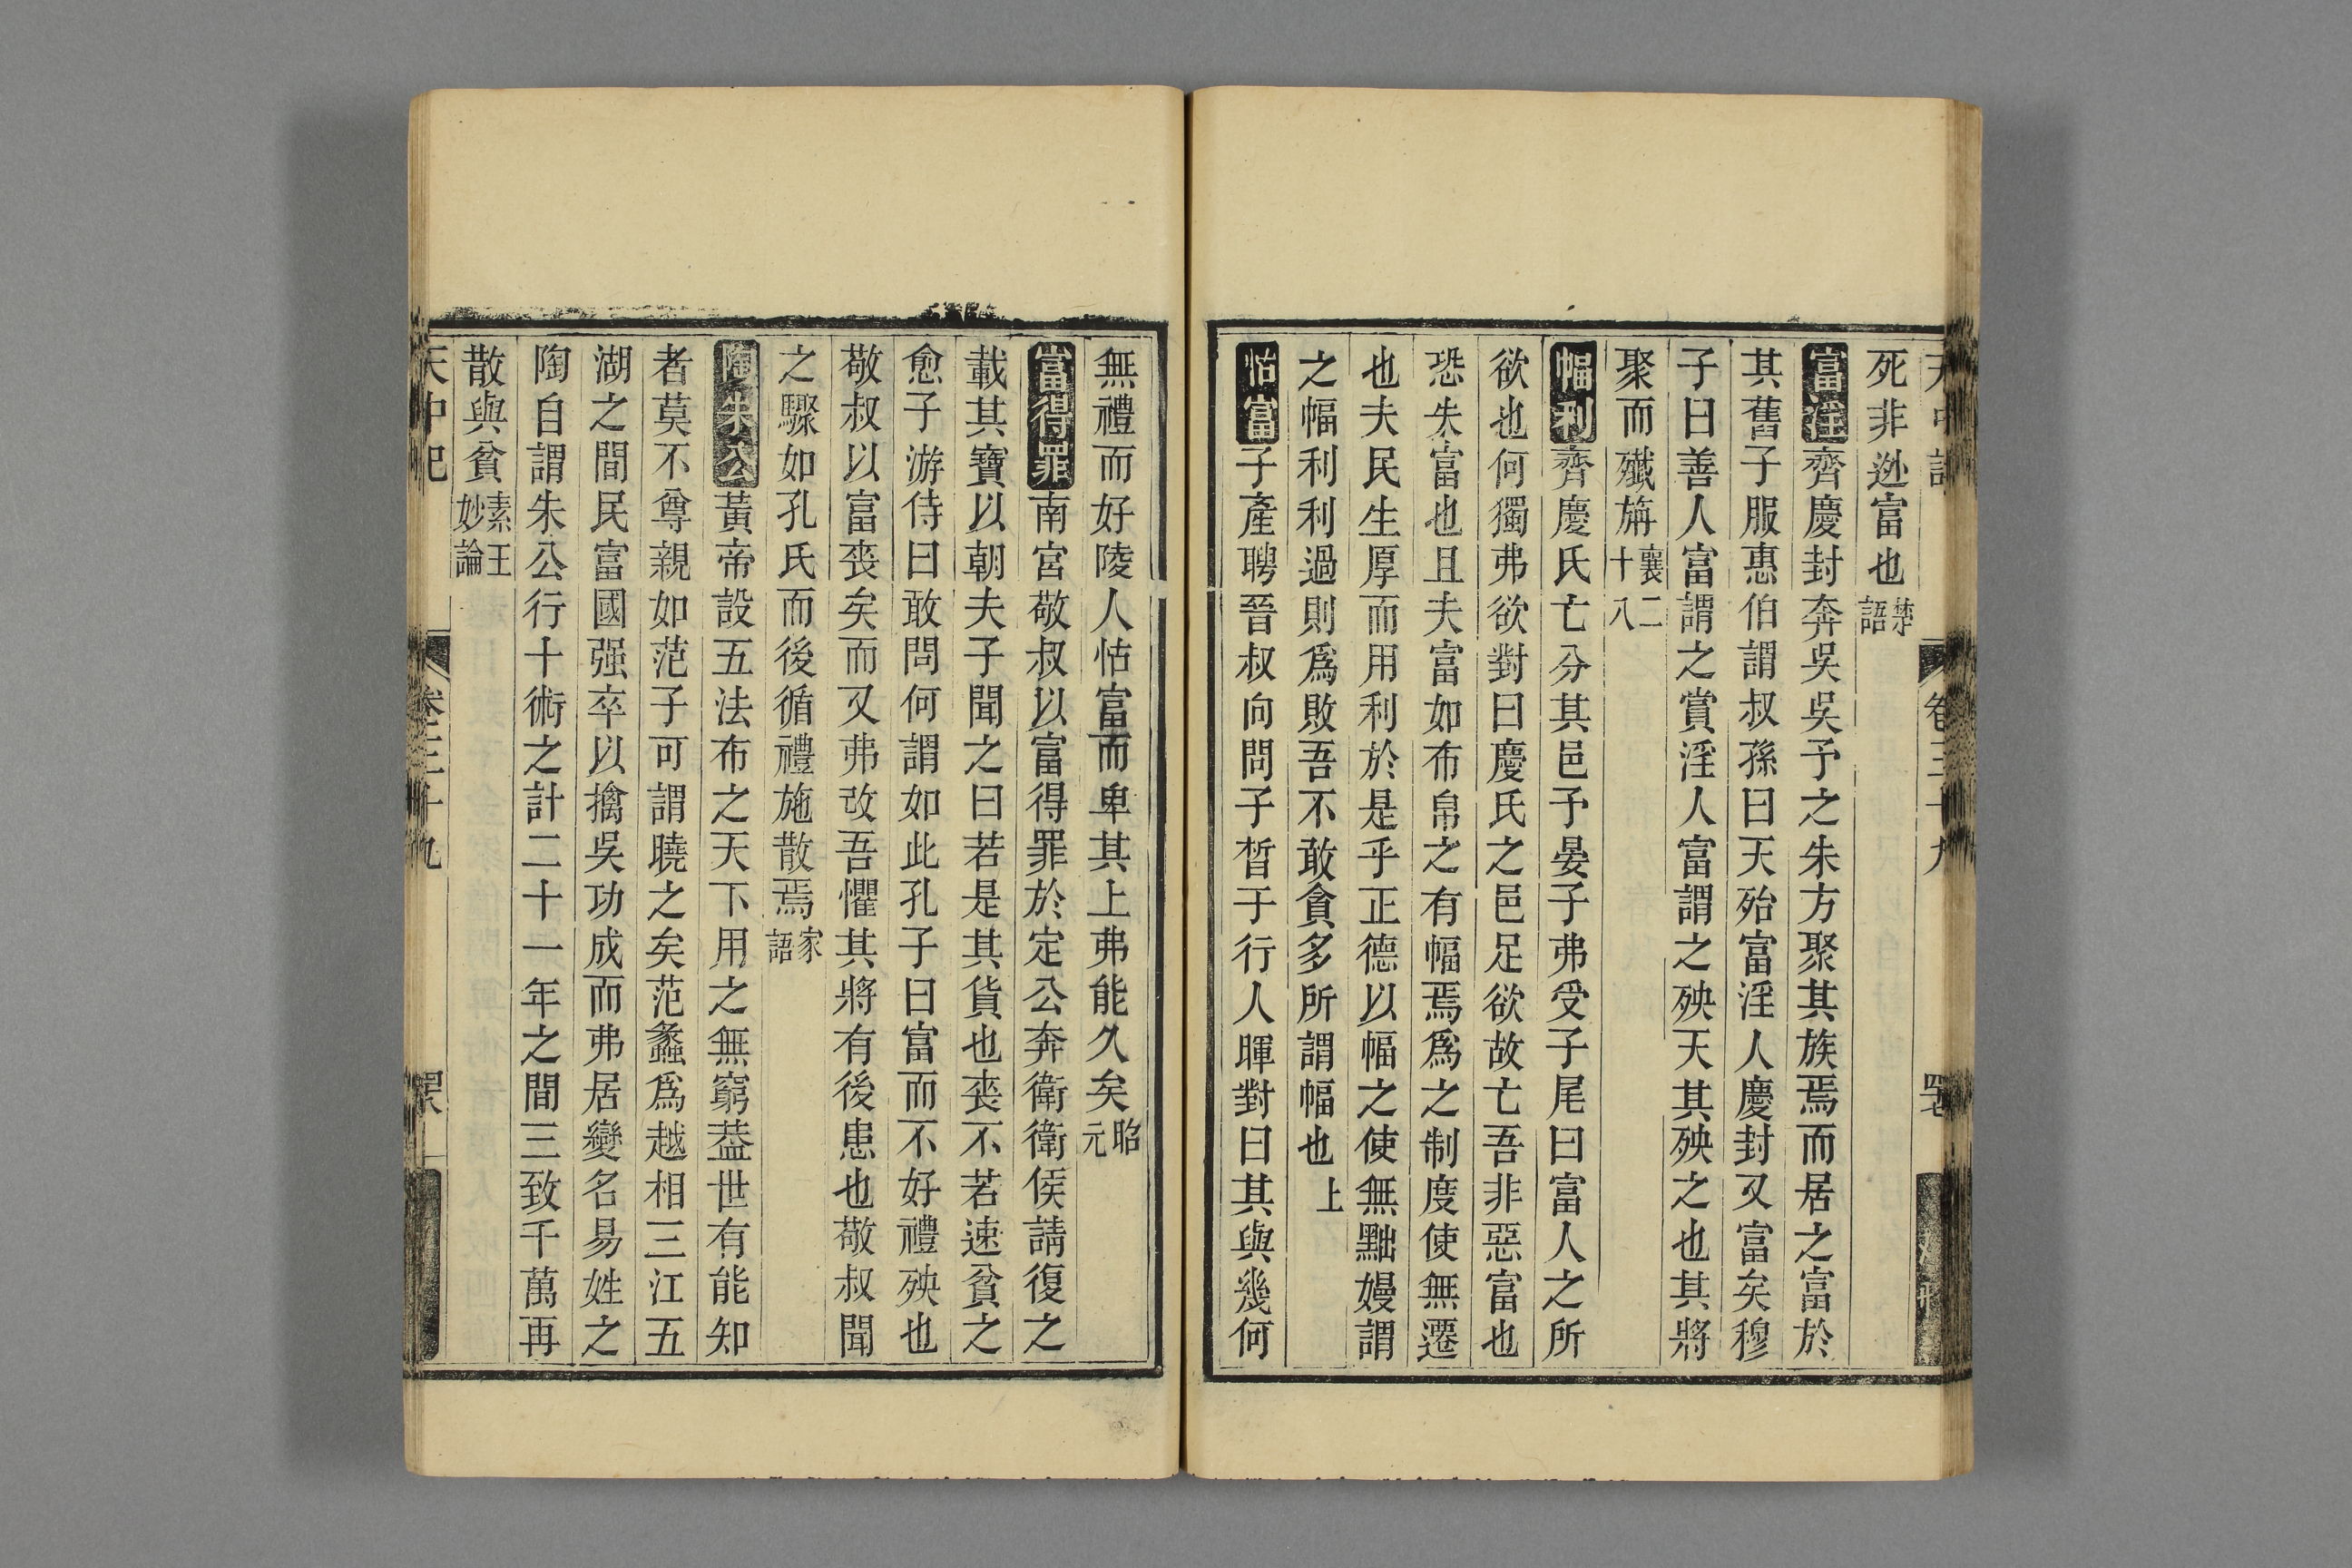 死非逃富也楚語
富淫齊慶封奔吳吳予之朱方聚其族焉而居之富於
其舊子服惠伯謂叔孫曰天殆富淫人慶封又富矣穆
子曰善人富謂之賞淫人富謂之殃天其殃之也其將
聚而殲旃襄二十八
幅利齊慶氏亡分其邑予晏子弗受子尾曰富人之所
欲也何獨弗欲對曰慶氏之邑足欲故亡吾非惡富也
恐失富也且夫富如布帛之有幅焉爲之制度使無遷
也夫民生厚而用利於是乎正德以幅之使無黜嫚謂
之幅利利過則爲敗吾不敢貪多所謂幅也上
怙富子產聘晉叔向問子皙于行人暉對曰其與幾何
無禮而好陵人怙富而卑其上弗能久矣昭元
富得罪南宮敬叔以富得罪於定公奔衛衛侯請復之
載其寶以朝夫子聞之曰若是其貨也喪不若速貧之
愈子游侍曰敢問何謂如此孔子曰富而不好禮殃也
敬叔以富喪矣而又弗改吾懼其將有後患也敬叔聞
之驟如孔氏而後循禮施散焉家語
陶朱公黃帝設五法布之天下用之無窮葢世有能知
者莫不尊親如范子可謂曉之矣范蠡爲越相三江五
湖之間民富國强卒以擒吳功成而弗居變名易姓之
陶自謂朱公行十術之計二十一年之間三致千萬再
散與貧素王妙論
天中記 卷三十九